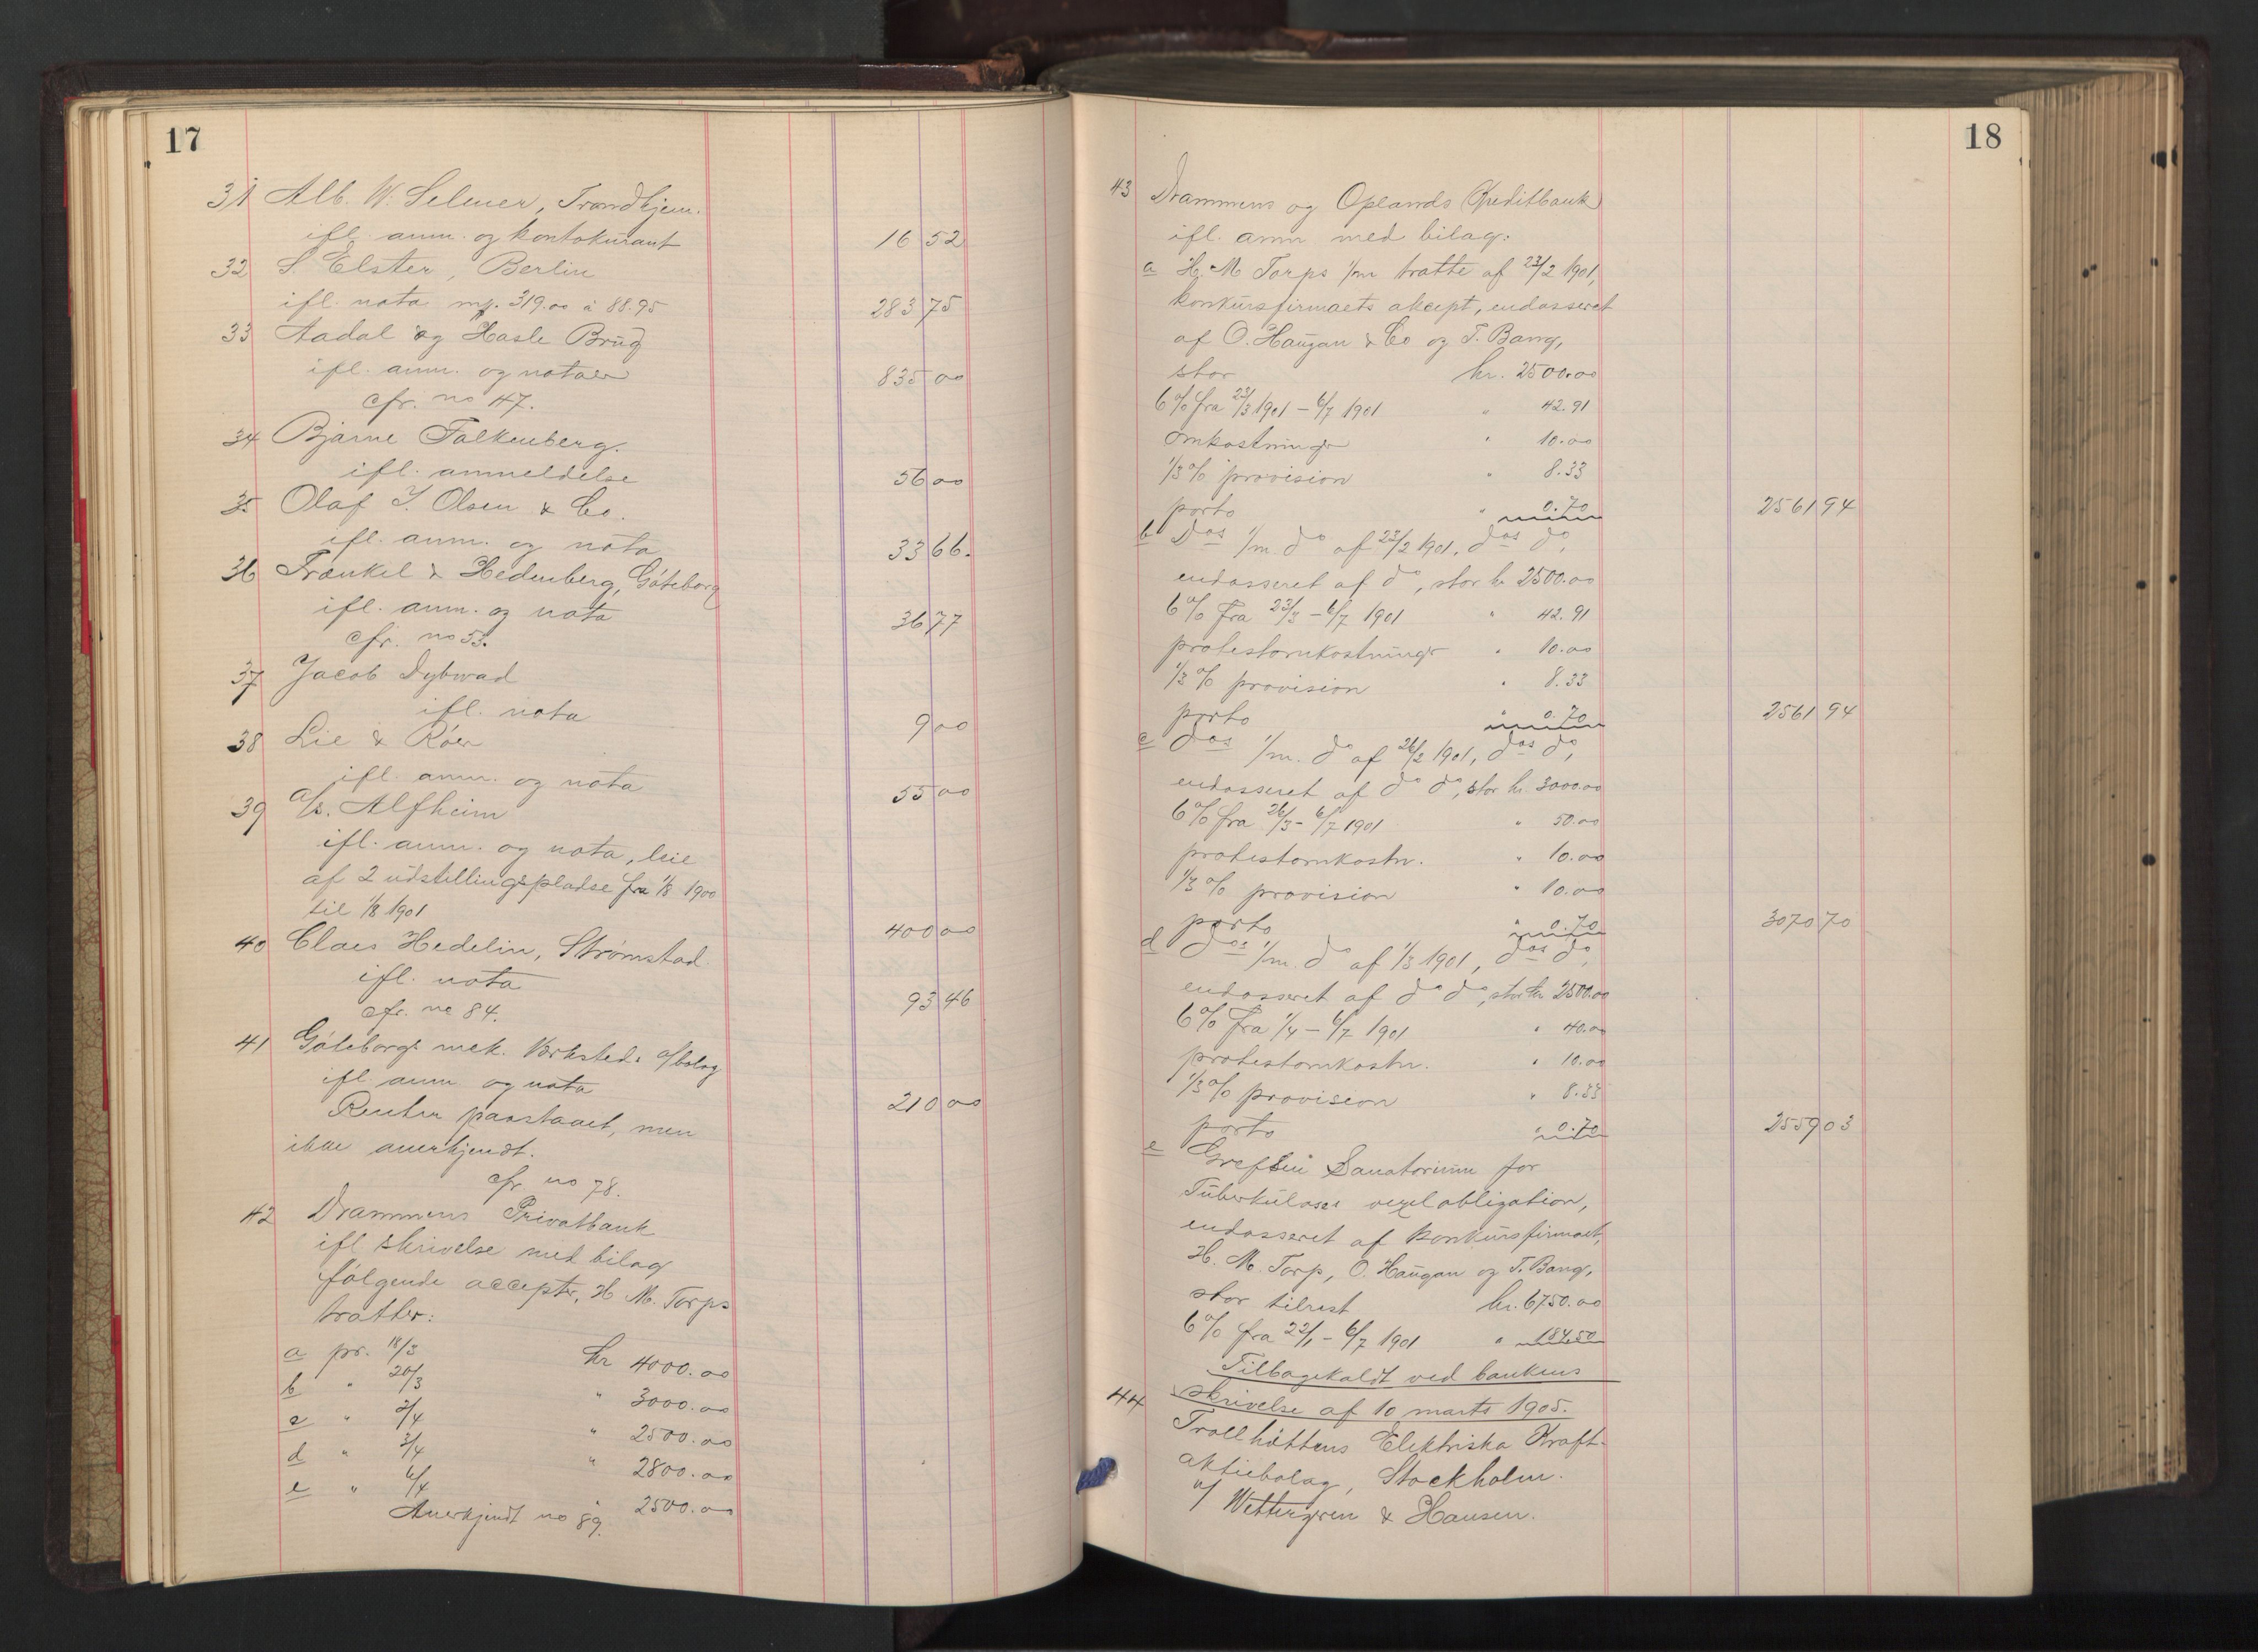 17
31 Alb. W. Selmer, Trondhjem.
ifl. anm. og kontokurant 16 52
32 S. Elster, Berlin
ifl. nota mk. 319.00 à 88.95 283 75
33 Aadal og Hasle Brug
ifl. anm. og notaer 835 00
cfr. no 47.
34 Bjarne Falkenberg.
ifl. anmeldelse 56 00
35 Olaf T. Olsen & Co.
ifl. anm. og nota 33 66.
36 Frænkel & Hedenberg, Göteborg
ifl. anm. og nota 36 77
cfr. no 53.
37 Jacob Dybwad
ifl. nota 9 00
38 Lie & Röer
ifl. anm. og nota 55 00
39 A/s. Alfheim
ifl. anm. og nota, leie
af 2 udstillingspladse fra 1/8 1900
til 1/8 1901 400 00
40 Claes Hedelin, Strømstad.
ifl. nota 93 46
cfr. no 84.
41 Göteborgs mek. Verksteds a/bolag
ifl. anm. og nota 210 00
Renter paastaaet, men
ikke anerkjendt.
cfr. no 78.
42 Drammens Privatbank
ifl skrivelse med bilag
følgende accepter, H. M. Torps
tratter:
a pr. 18/3 kr 4000.00
b " 20/3 " 3000.00
c " 2/4 " 2500.00
d " 3/4 " 2800.00
e " 6/4 " 2500.00
Anerkjendt no 89.
18
43 Drammens og Oplands Kreditbank
ifl. anm med bilag:
a H. M Torps 1/m tratte af 23/2 1901,
konkursfirmaets akcept, endosseret
af O. Haugan & Co og T. Bang,
stor kr. 2500.00
6% fra 23/3 1901 – 6/7 1901 " 42.91
omkostninger " 10.00
1/3 % provision " 8.33
porto " 0.70 2561 94
b Dos 1/m. do af 23/2 1901, dos do,
endosseret af do, stor kr 2500.00
6% fra 23/3 – 6/7 1901 " 42.91
protestomkostninger " 10.00
1/3 % provision " 8.33
porto " 0.70 2561 94
c Dos 1/m. do af 26/2 1901, dos do,
endosseret af do do, stor kr. 3000.00
6% fra 26/3 – 6/7 1901 " 50.00
protestomkostn. " 10.00
1/3 % provision " 10.00
porto " 0.70 3070 70
d Dos 1/m. do af 1/3 1901, dos do,
endosseret af do do, stor kr 2500.00
6% fra 1/4 – 6/7 1901 " 40.00
protestomkostn. " 10.00
1/3 % provision " 8.33
porto " 0.70 2559 03
e Grefsen Sanatorium for
Tuberkuloses vexelobligation,
endosseret af konkursfirmaet,
H. M. Torp, O. Haugan og T. Bang,
stor tilrest kr. 6750.00
6% fra 22/1 – 6/7 1901 " 184.50
Tilbagekaldt ved bankens
skrivelse af 10 marts 1905.
44 Trollhättens Elektriska Kraft-
aktiebolag, Stockholm.
v/ Wettergren & Hansen.